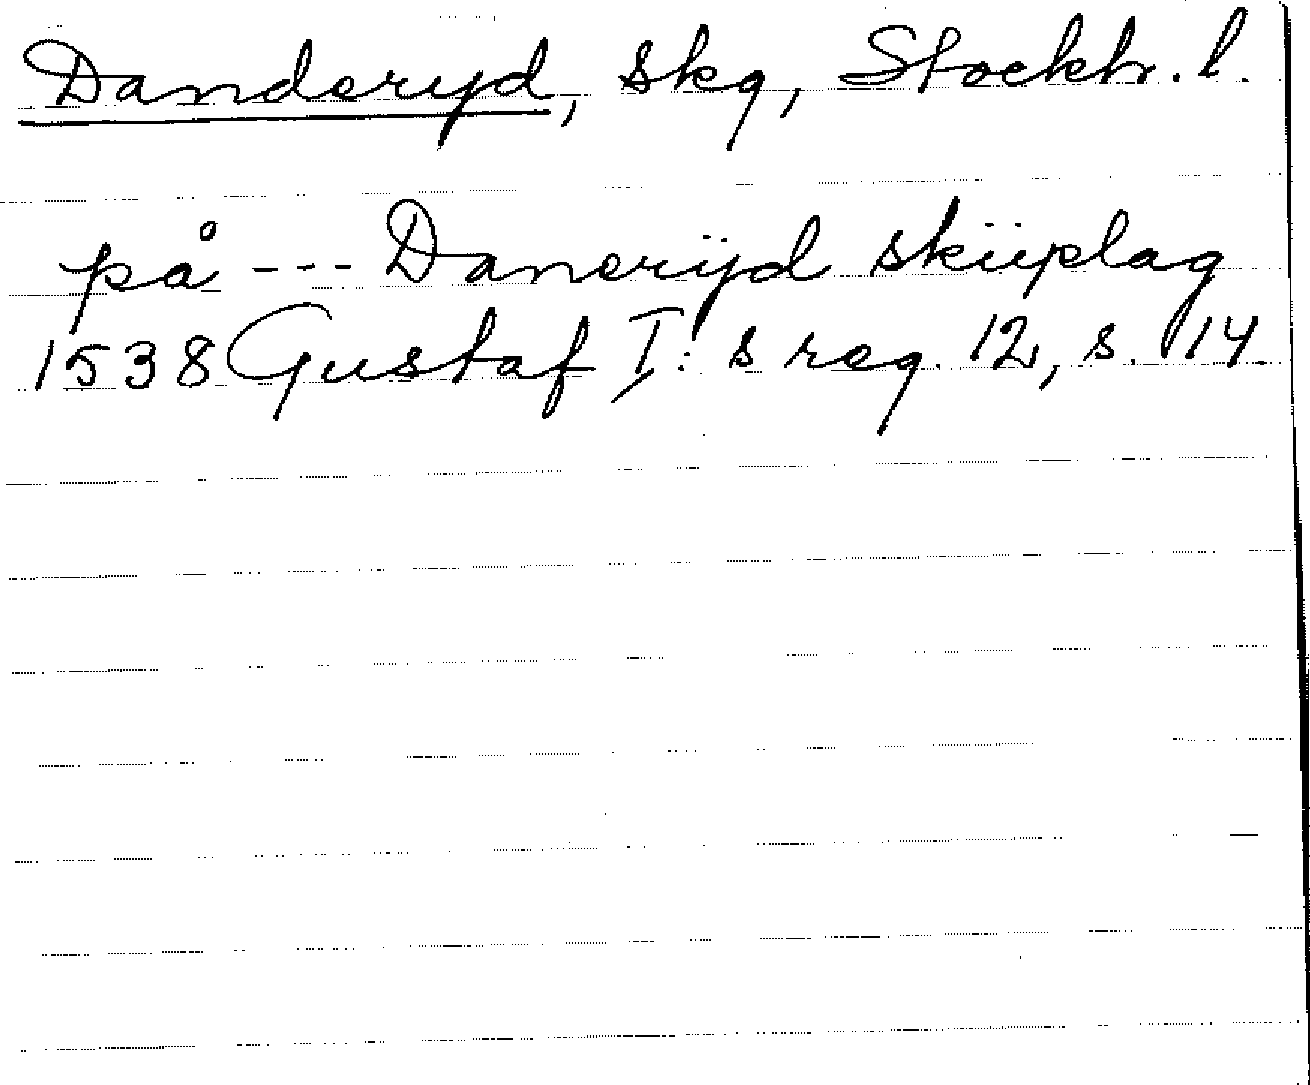 Danderyd, skg, Stockh. l.
på --- Danerÿd skiiplag
1538 Gustaf I:s reg. 12, s. 14